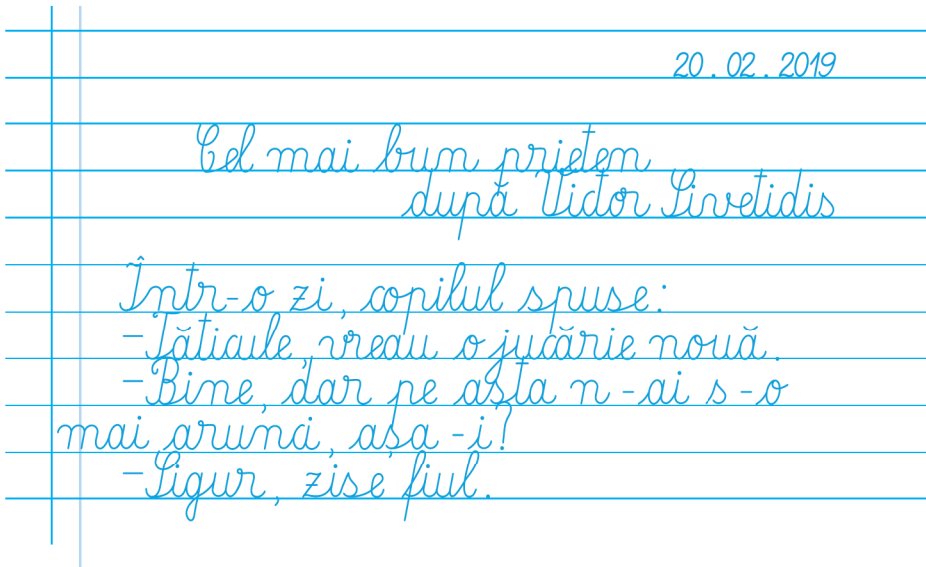 20.02.2019
Cel mai bun prieten
după Victor Sivetidis
Într-o zi, copilul spuse:
-Tăticule, vreau o jucărie nouă.
-Bine, dar pe asta n-ai s-o
mai arunci, așa-i?
-Sigur, zise fiul.